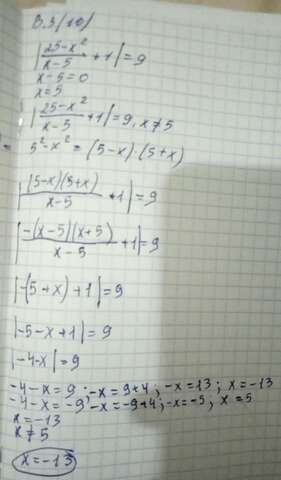 В.3(10)
|(25-x²)/(x-5) + 1| = 9
x-5=0
x=5
|(25-x²)/(x-5) + 1| = 9, x≠5
5²-x² = (5-x)·(5+x)
|((5-x)(5+x))/(x-5) + 1| = 9
|(-(x-5)(x+5))/(x-5) + 1| = 9
|-(5+x)+1| = 9
|-5-x+1| = 9
|-4-x| = 9
-4-x=9; -x=9+4; -x=13; x=-13
-4-x=-9; -x=-9+4; -x=-5, x=5
x=-13
x≠5
x=-13